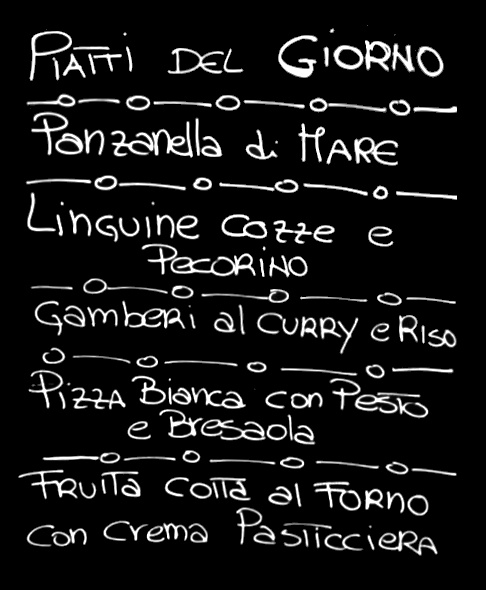 Piatti del Giorno
Panzanella di Mare
Linguine Cozze e
Pecorino
Gamberi al Curry e Riso
Pizza Bianca con Pesto
e Bresaola
Frutta Cotta al Forno
con Crema Pasticciera